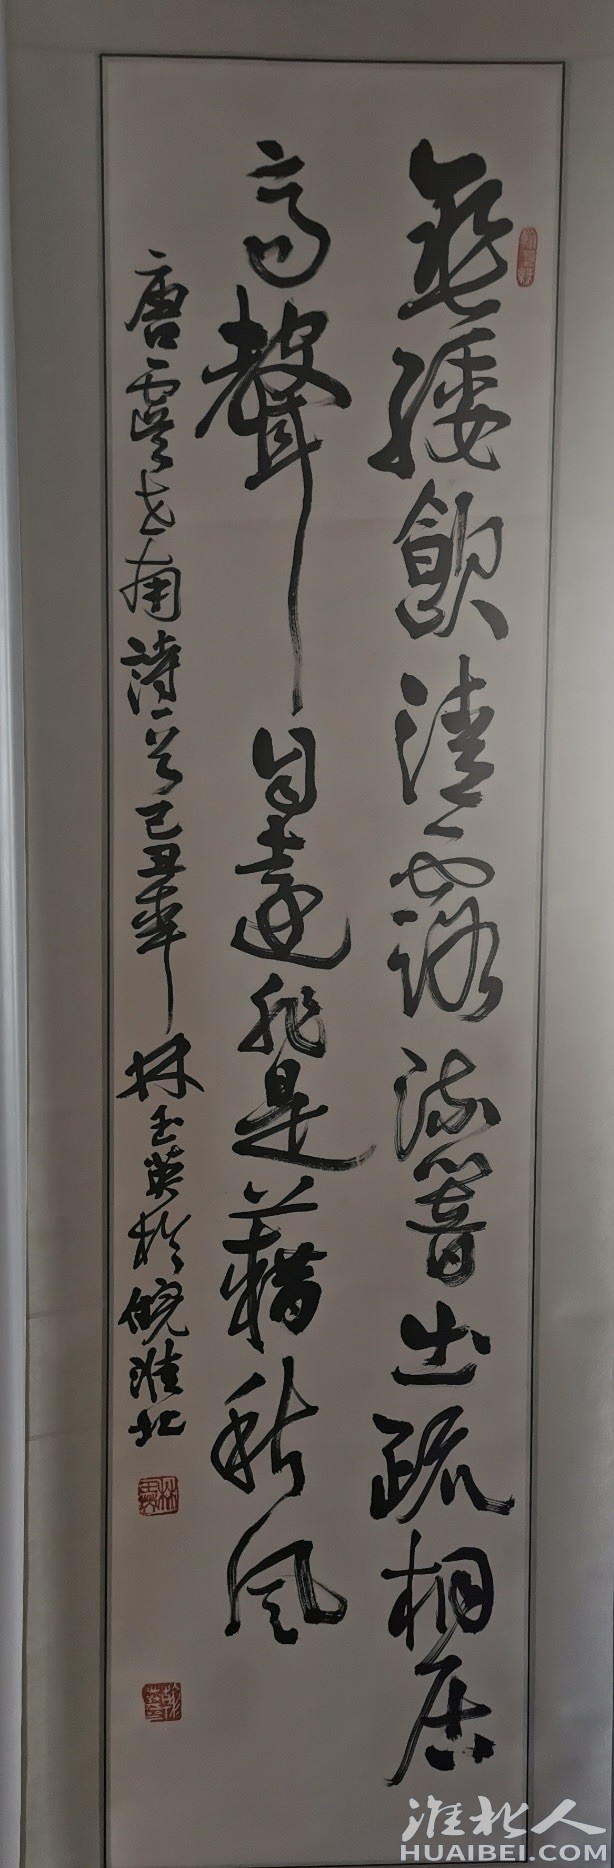 垂緌飲清露流響出疏桐居
高聲自遠非是藉秋風
唐虞世南詩一首己丑年林玉英於皖淮北
淮北人
HUAIBEI.COM